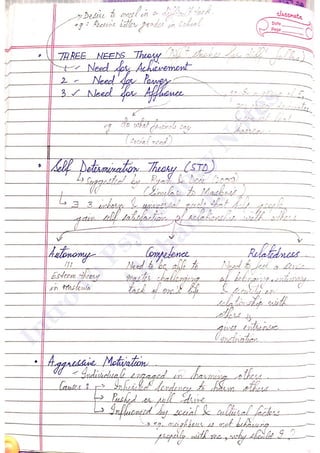 → Desire to excel in a difficult task
eg: Receive better grades in school
classmate
Date
Page
• THREE NEEDS Theory
1 - Need for Achievement
2 - Need for Power
3 ✓ Need for Affluence
eg do what friends say
(social need)
• Self Determination Theory (STD)
↳ Suggested by Ryan & Deci
(Similar to Maslow)
↳ ∃ 3 inborn & universal goals that help people
gain self satisfaction & relationship with others
Autonomy Competence Relatedness
Esteem theory
in Maslow's
Need to be able to
master challenging
task of one's life
Need to feel a sense
of belonging, intimacy
relationship with
others &
gives intrinsic
motivation
• Aggressive Motivation
- Individuals engaged in harming others.
Causes: → Inherited tendency to harm others.
↳ Pushed or pull drive
↳ Influenced by social & cultural factors
↳ eg. neighbour is not behaving
properly with me, why should I?